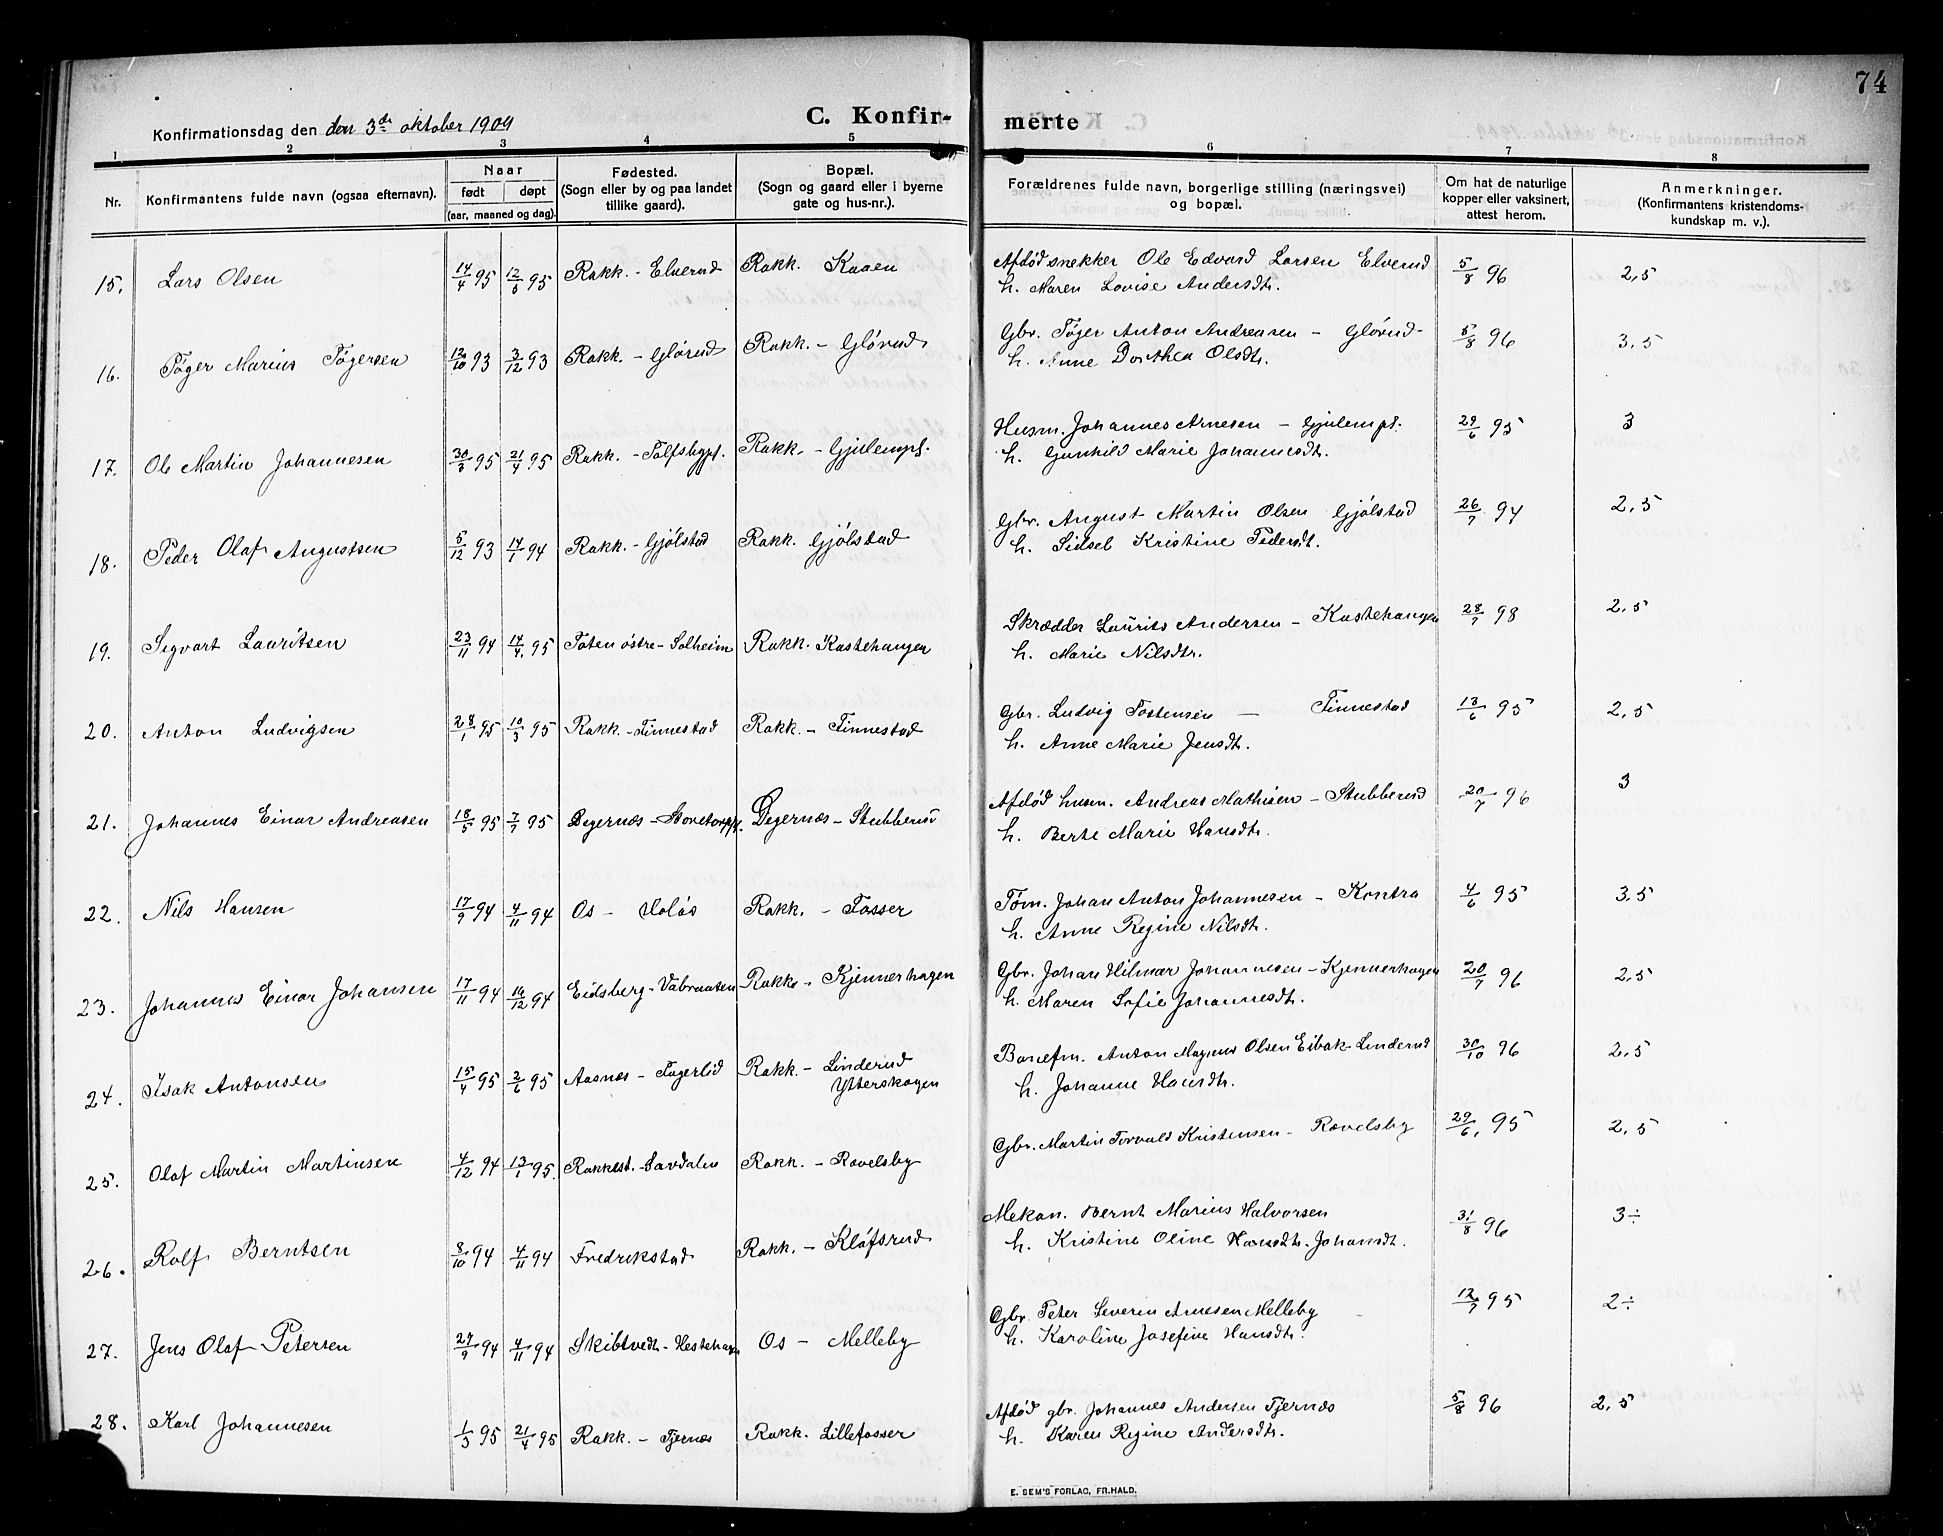 74
Konfirmationsdag den den 3de oktober 1909
C. Konfirmerte
1. 2 3 4 5 6 7 8
Nr. Konfirmantens fulde navn (ogsaa efternavn). Naar født døpt (aar, maaned og dag). Fødested. (Sogn eller by og paa landet tillike gaard). Bopæl. (Sogn og gaard eller i byerne gate og hus-nr.). Forældrenes fulde navn, borgerlige stilling (næringsvei) og bopæl. Om hat de naturlige kopper eller vaksinert, attest herom. Anmerkninger. (Konfirmantens kristendoms-kundskap m. v.).
15. Lars Olsen 14/4 95 12/5 95 Rakk. - Elverud Rakk. Kaaen Afdød snekker Ole Edvard Larsen Elverud 5/8 96 2,5
h. Maren Lovise Andersdt.
16. Tøger Marius Tøgersen 12/10 93 3/12 93 Rakk. - Glørud Rakk. - Glørud Gbr. Tøger Anton Andreasen - Glørud 5/8 96 3,5
h. Anne Dorthea Olsdt.
17. Ole Martin Johannesen 30/3 95 21/4 95 Rakk. - Tolfsbypl. Rakk. - Gjulempl. Husm. Johannes Arnesen - Gjulempl. 29/6 95 3
h. Gunhild Marie Johannesdt.
18. Peder Olaf Augustsen 5/12 93 14/1 94 Rakk. - Gjølstad Rakk. Gjølstad Gbr. August Martin Olsen Gjølstad 26/7 94 2,5
h. Sidsel Kristine Pedersdt.
19. Sigvart Lauritsen 23/11 94 14/4 95 Toten østre - Solheim Rakk. Kastehangen Skrædder Laurits Andersen - Kastehangen 28/7 98 2,5
h. Marie Nilsdt.
20. Anton Ludvigsen 28/1 95 10/3 95 Rakk. - Finnestad Rakk. - Finnestad Gbr. Ludvig Tostensen - Finnestad 13/6 95 2,5
h. Anne Marie Jensdt.
21. Johannes Einar Andreasen 18/5 95 7/7 95 Degernæs - Degernæs - Stubberud Afdød husm. Andreas Mathisen - Stubberud 20/7 96 3
h. Berte Marie Hansdt.
22. Nils Hansen 17/9 94 4/11 94 Os - Holøs Rakk. - Fosser Tøm. Johan Anton Johannesen - Kontra 4/6 95 3,5
h. Anne Regine Nilsdt.
23. Johannes Einar Johansen 17/11 94 16/12 94 Eidsberg - Vabraaten Rakk. - Kjennerhagen Gbr. Johan Hilmar Johannesen - Kjennerhagen 20/7 96 2,5
h. Maren Sofie Johannesdt.
24. Isak Antonsen 15/4 95 2/6 95 Aasnæs - Fagerlid Rakk. - Linderud Ytterskogen Banefm. Anton Magnus Olsen Eibak - Linderud 30/10 96 2,5
h. Johanne Hansdt.
25. Olaf Martin Martinsen 4/12 94 13/1 95 Rakkest. - Savdalen Rakk. - Rovelsby Gbr. Martin Torvald Kristensen - Rovelsby 29/6 95 2,5
26. Rolf Berntsen 8/10 94 4/11 94 Fredrikstad Rakk. - Kløfsrud Mekan. Bernt Marius Halvorsen 31/8 96 3÷
h. Kristine Oline Hansdt. Johansdt.
27. Jens Olaf Petersen 27/9 94 4/11 94 Skibtvedt - Hestehagen Os - Melleby Gbr. Peter Severin Arnesen Melleby 12/7 95 2÷
h. Karoline Josefine Hansdt.
28. Karl Johannesen 1/3 95 21/4 95 Rakk. - Tjernæs Rakk. Lillefosser Afdød gbr. Johannes Andersen Tjernæs 5/8 96 2,5
h. Karen Regine Andersdt.
E. SEM'S FORLAG, FR.HALD.